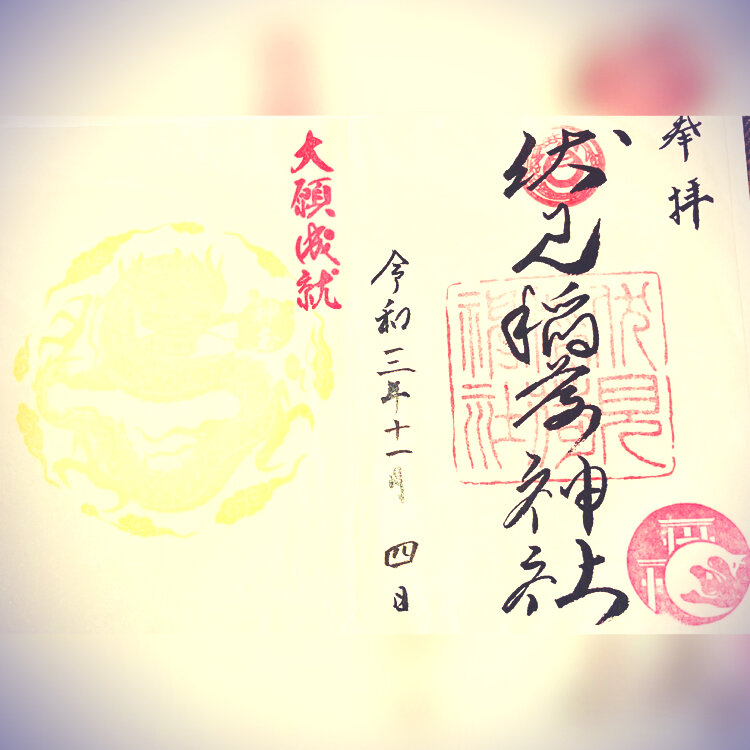 奉拝
伏見稲荷神社
伏見稲荷神社
令和三年十一月四日
大願成就